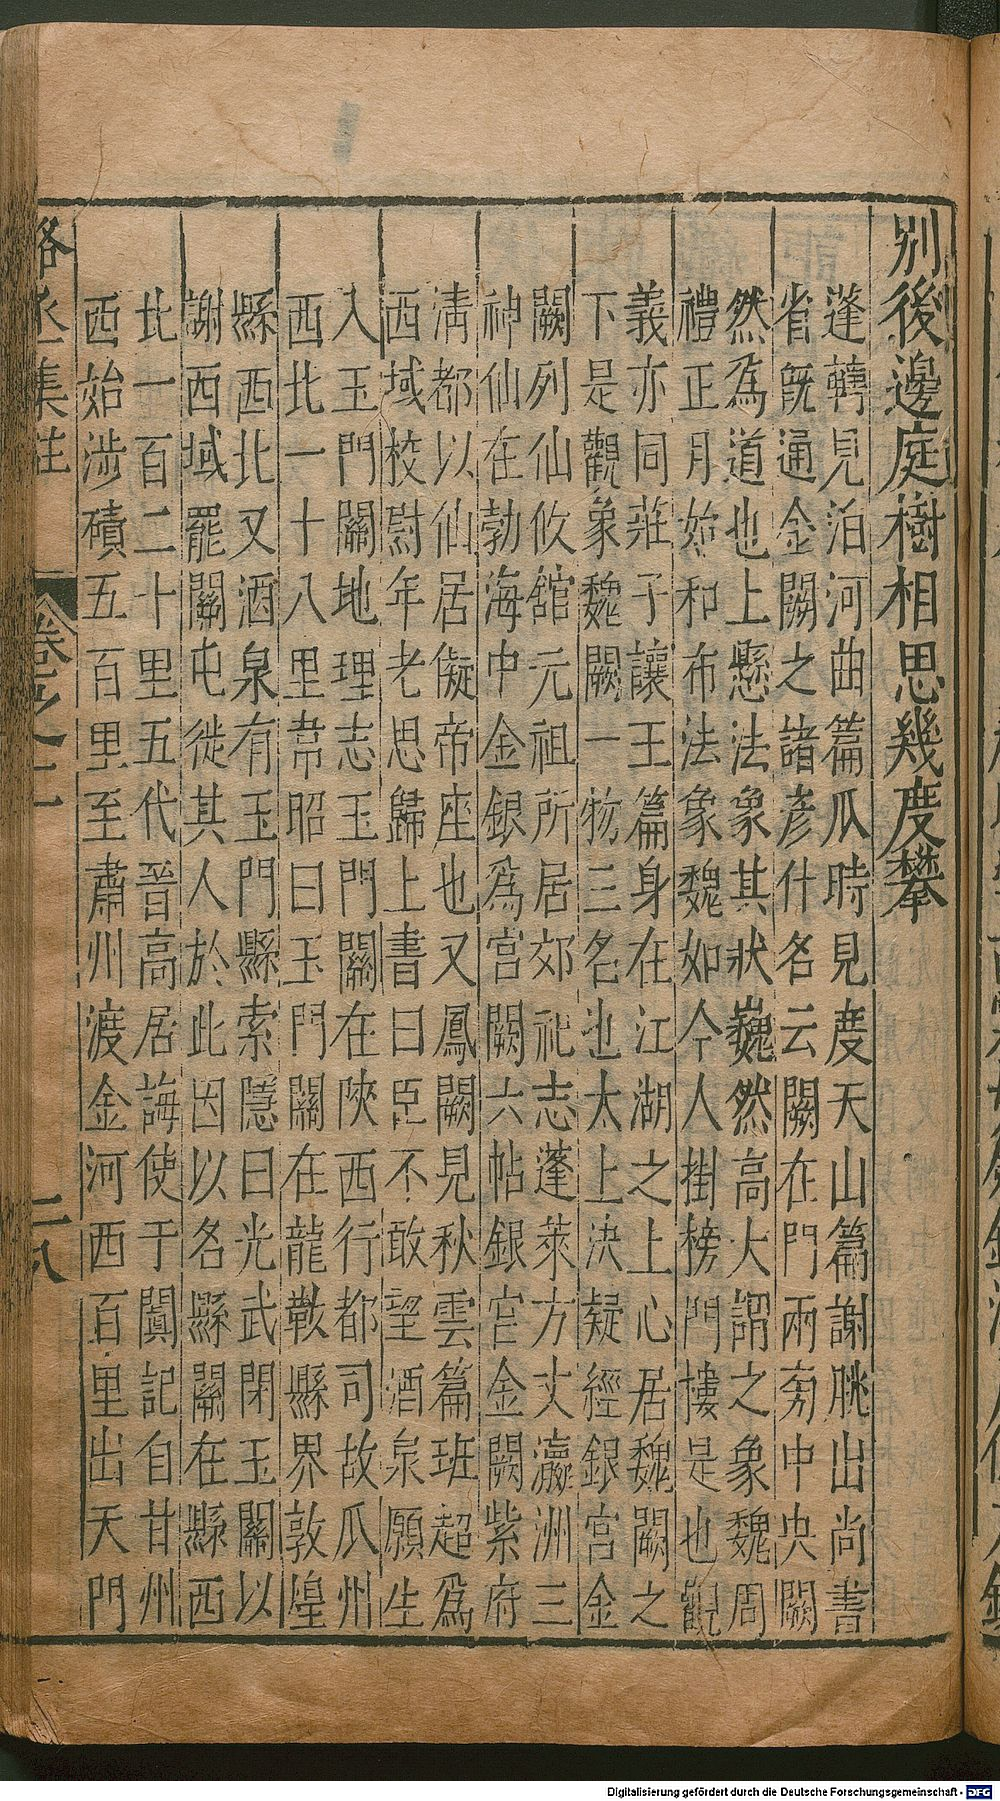 別後邊庭樹相思幾度攀
蓬轉見泊河曲篇瓜時見度天山篇謝朓出尚書
省既通金闕之諸彦什名云闕在門兩旁中央闕
然爲道也上懸法象其狀巍然高大謂之象魏周
禮正月始和布法象魏如今人掛榜門樓是也觀
義亦同莊子讓王篇身在江湖之上心居魏闕之
下是觀象魏闕一物三名也太上決疑經銀宮金
闕列仙攸舘元祖所居郊祀志蓬萊方丈瀛洲三
神仙在勃海中金銀爲宮闕六帖銀宮金闕紫府
淸都以仙仙居儗帝座也又鳳闕見秋雲篇班超爲
西域校尉年老思歸上書曰臣不敢望酒泉願生
入玉門關地理志玉門關在陝西行都司故瓜州
西北一十八里韋昭曰玉門關在龍勒縣界敦煌
縣西北又酒泉有玉門縣索隱曰光武閉玉關以
謝西域罷關屯徙其人於此因以名縣關在縣西
北一百二十里五代晉高居誨使于闐記自甘州
西始涉磧五百里至肅州渡金河西百里出天門
駱丞集註 卷之二 二八
Digitalisierung gefördert durch die Deutsche Forschungsgemeinschaft - DFG